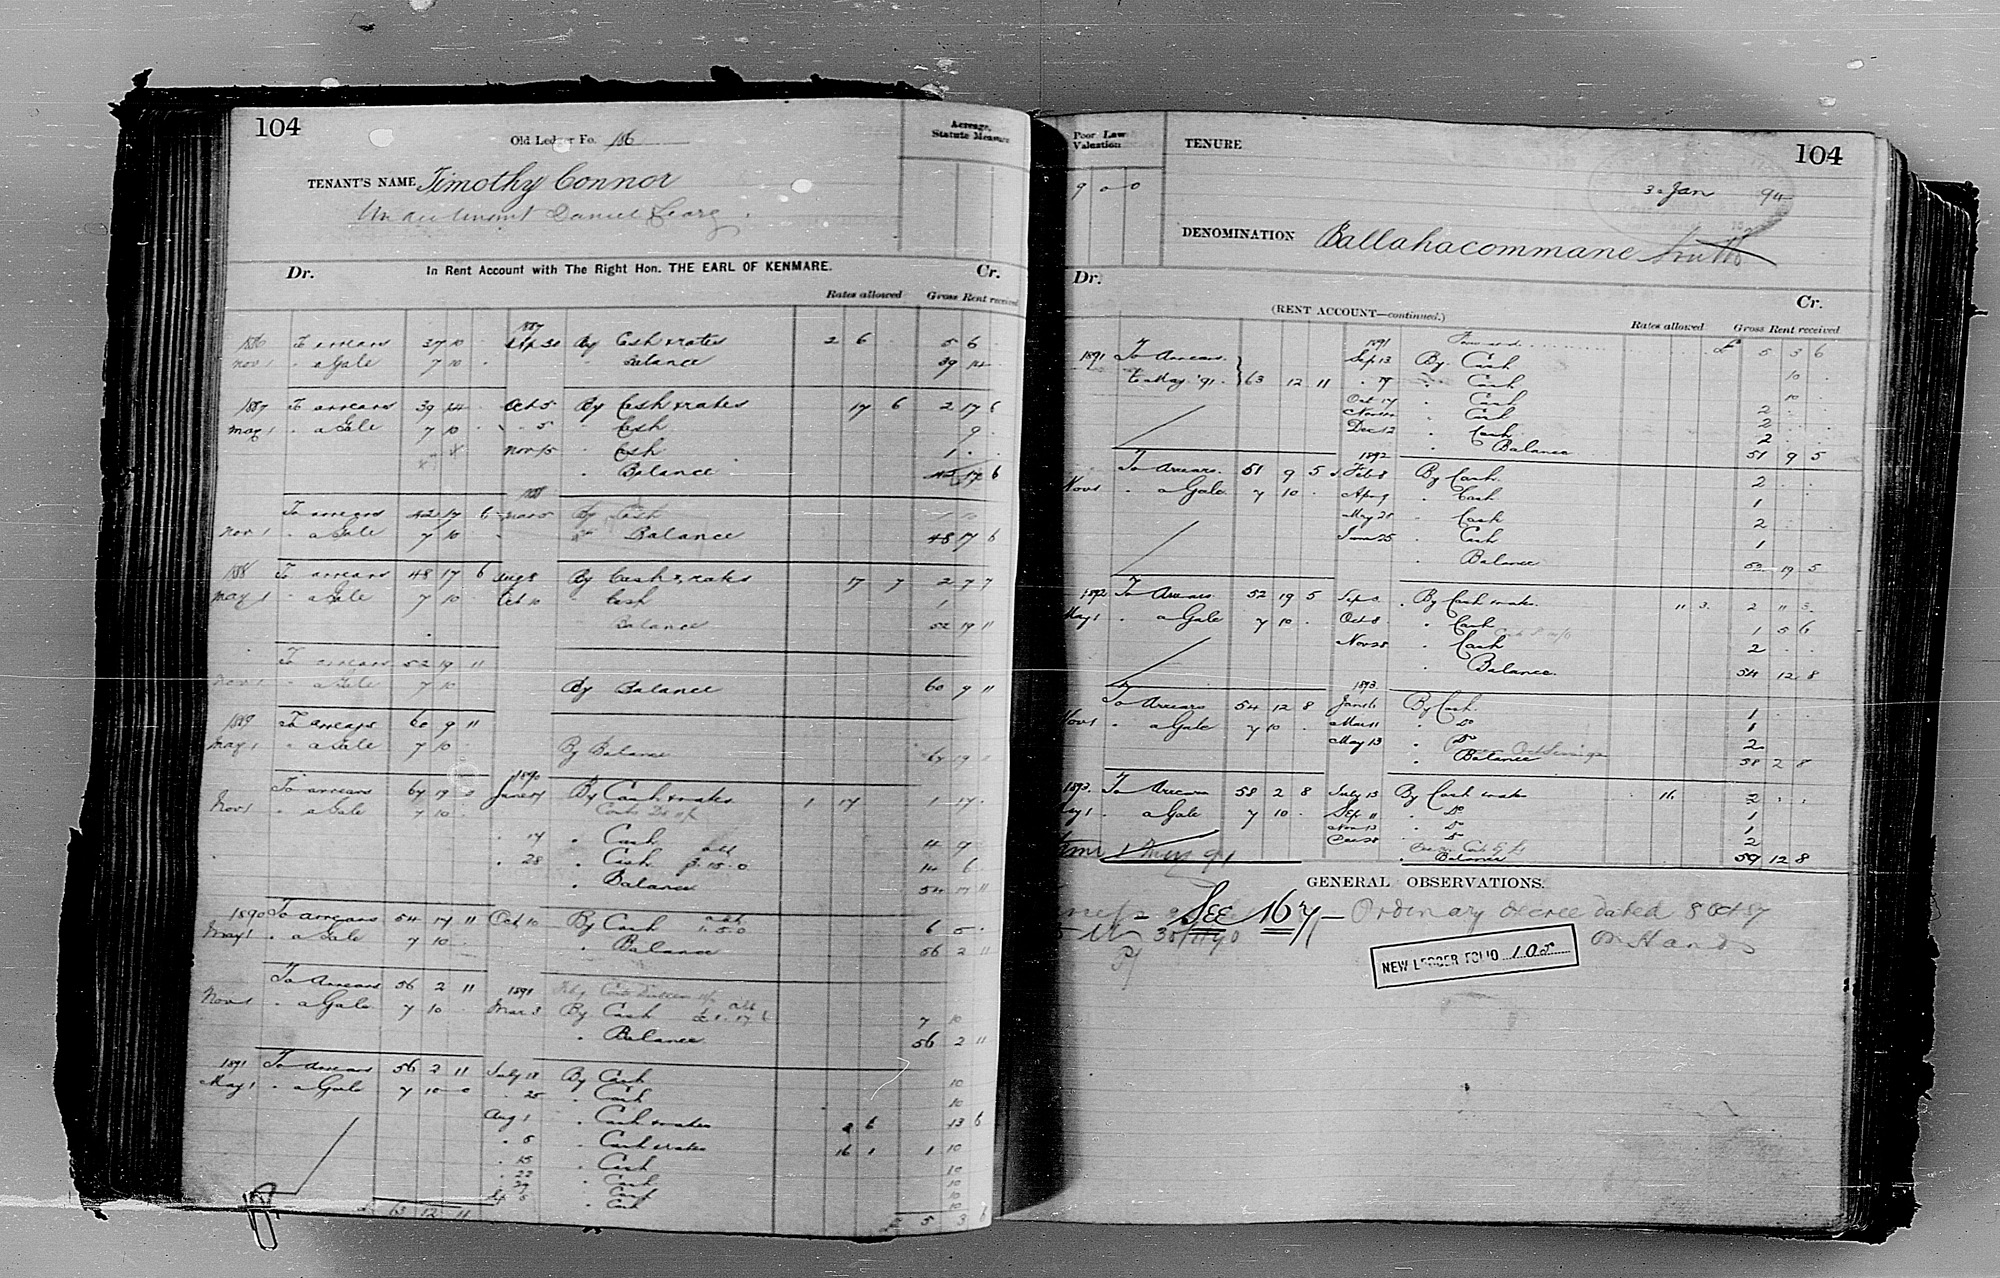 104
Old Ledger Fo. 186
Acreage, Statute Measure
TENANT'S NAME Timothy Connor
Daniel
Dr. In Rent Account with The Right Hon. THE EARL OF KENMARE. Cr.
Rates allowed Gross Rent received
1887
1886 To arrears 37 10 Sep 30 By Cash & rates 2 6 5 6
Nov 1 " a Gale 7 10 " Balance 39 14
1887 To arrears 39 14 Oct 5 By Cash & rates 17 6 2 17 6
May 1 " a Gale 7 10 " 5 " Cash 9
Nov 15 " Cash 1
" Balance 42 17 6
1888
To arrears 42 17 6 Mar 5 By Cash
Nov 1 " a Gale 7 10 Balance 48 17 6
1888 To arrears 48 17 6 Aug 8 By Cash & rates 17 7 2 7 7
May 1 " a Gale 7 10 Oct 10 " Cash 1
Balance 52 19 11
To arrears 52 19 11
Nov 1 " a Gale 7 10 By Balance 60 9 11
1889 To arrears 60 9 11
May 1 " a Gale 7 10 By Balance 67 19
1890
To arrears 67 19 By Cash & rates 1 17 1 17
Nov 1 " a Gale 7 10
" 14 " Cash 4 9
" 28 " Cash 3.15.0 14 6
" Balance 54 17 11
1890 To arrears 54 17 11 Oct 10 By Cash 1.5.0 6 5
May 1 " a Gale 7 10 " Balance 56 2 11
To Arrears 56 2 11 1891
Nov 1 " a Gale 7 10 Mar 3 By Cash 7 10
" Balance 56 2 11
1891 To Arrears 56 2 11 July 18 By Cash 10
May 1 " a Gale 7 10 0 " 25 " Cash 10
Aug 1 " Cash & rates 2 6 13 6
" 5 " Cash & rates 16 1 1 10
" 15 " Cash 10
" 22 " Cash 10
" 29 " Cash 10
Sep 5 " Cash 10
£ 63 12 11 £ 5 3 6
Poor Law Valuation
9 0 0
TENURE
104
30 Jan 94
DENOMINATION Ballahacommane
Dr. Cr.
(RENT ACCOUNT—continued.)
Rates allowed Gross Rent received
1891 Forward £ 5 3 6
1891 To Arrears Sep 13 By Cash 10
to May '91 63 12 11 " 19 " Cash 10
Oct 17 " Cash 2
" Cash 2
Dec 12 " Cash 2
" Balance 51 9 5
1892
To Arrears 51 9 5 Feb 8 By Cash 2
Nov 1 " a Gale 7 10 Apr 9 " Cash 1
May 28 " Cash 2
June 25 " Cash 1
Balance 52 19 5
1892 To Arrears 52 19 5 By Cash & rates 11 3 2 11 3
May 1 " a Gale 7 10 Oct 8 " Cash 1 5 6
Nov 28 " Cash 2
" Balance 54 12 8
1893
To Arrears 54 12 8 By Cash 1
Nov 1 " a Gale 7 10 Mar 11 " Do 1
May 13 " Do 2
" Balance 58 2 8
1893 To Arrears 58 2 8 July 13 By Cash & rates 16 2
" a Gale 7 10 Sep 11 " Do 1
Nov 13 " Do 1
Dec 28 " Do 2
" Balance 59 12 8
GENERAL OBSERVATIONS.
SEE 167 Ordinary decree dated 8 Oct 87
on Hands
NEW LEDGER FOLIO 105